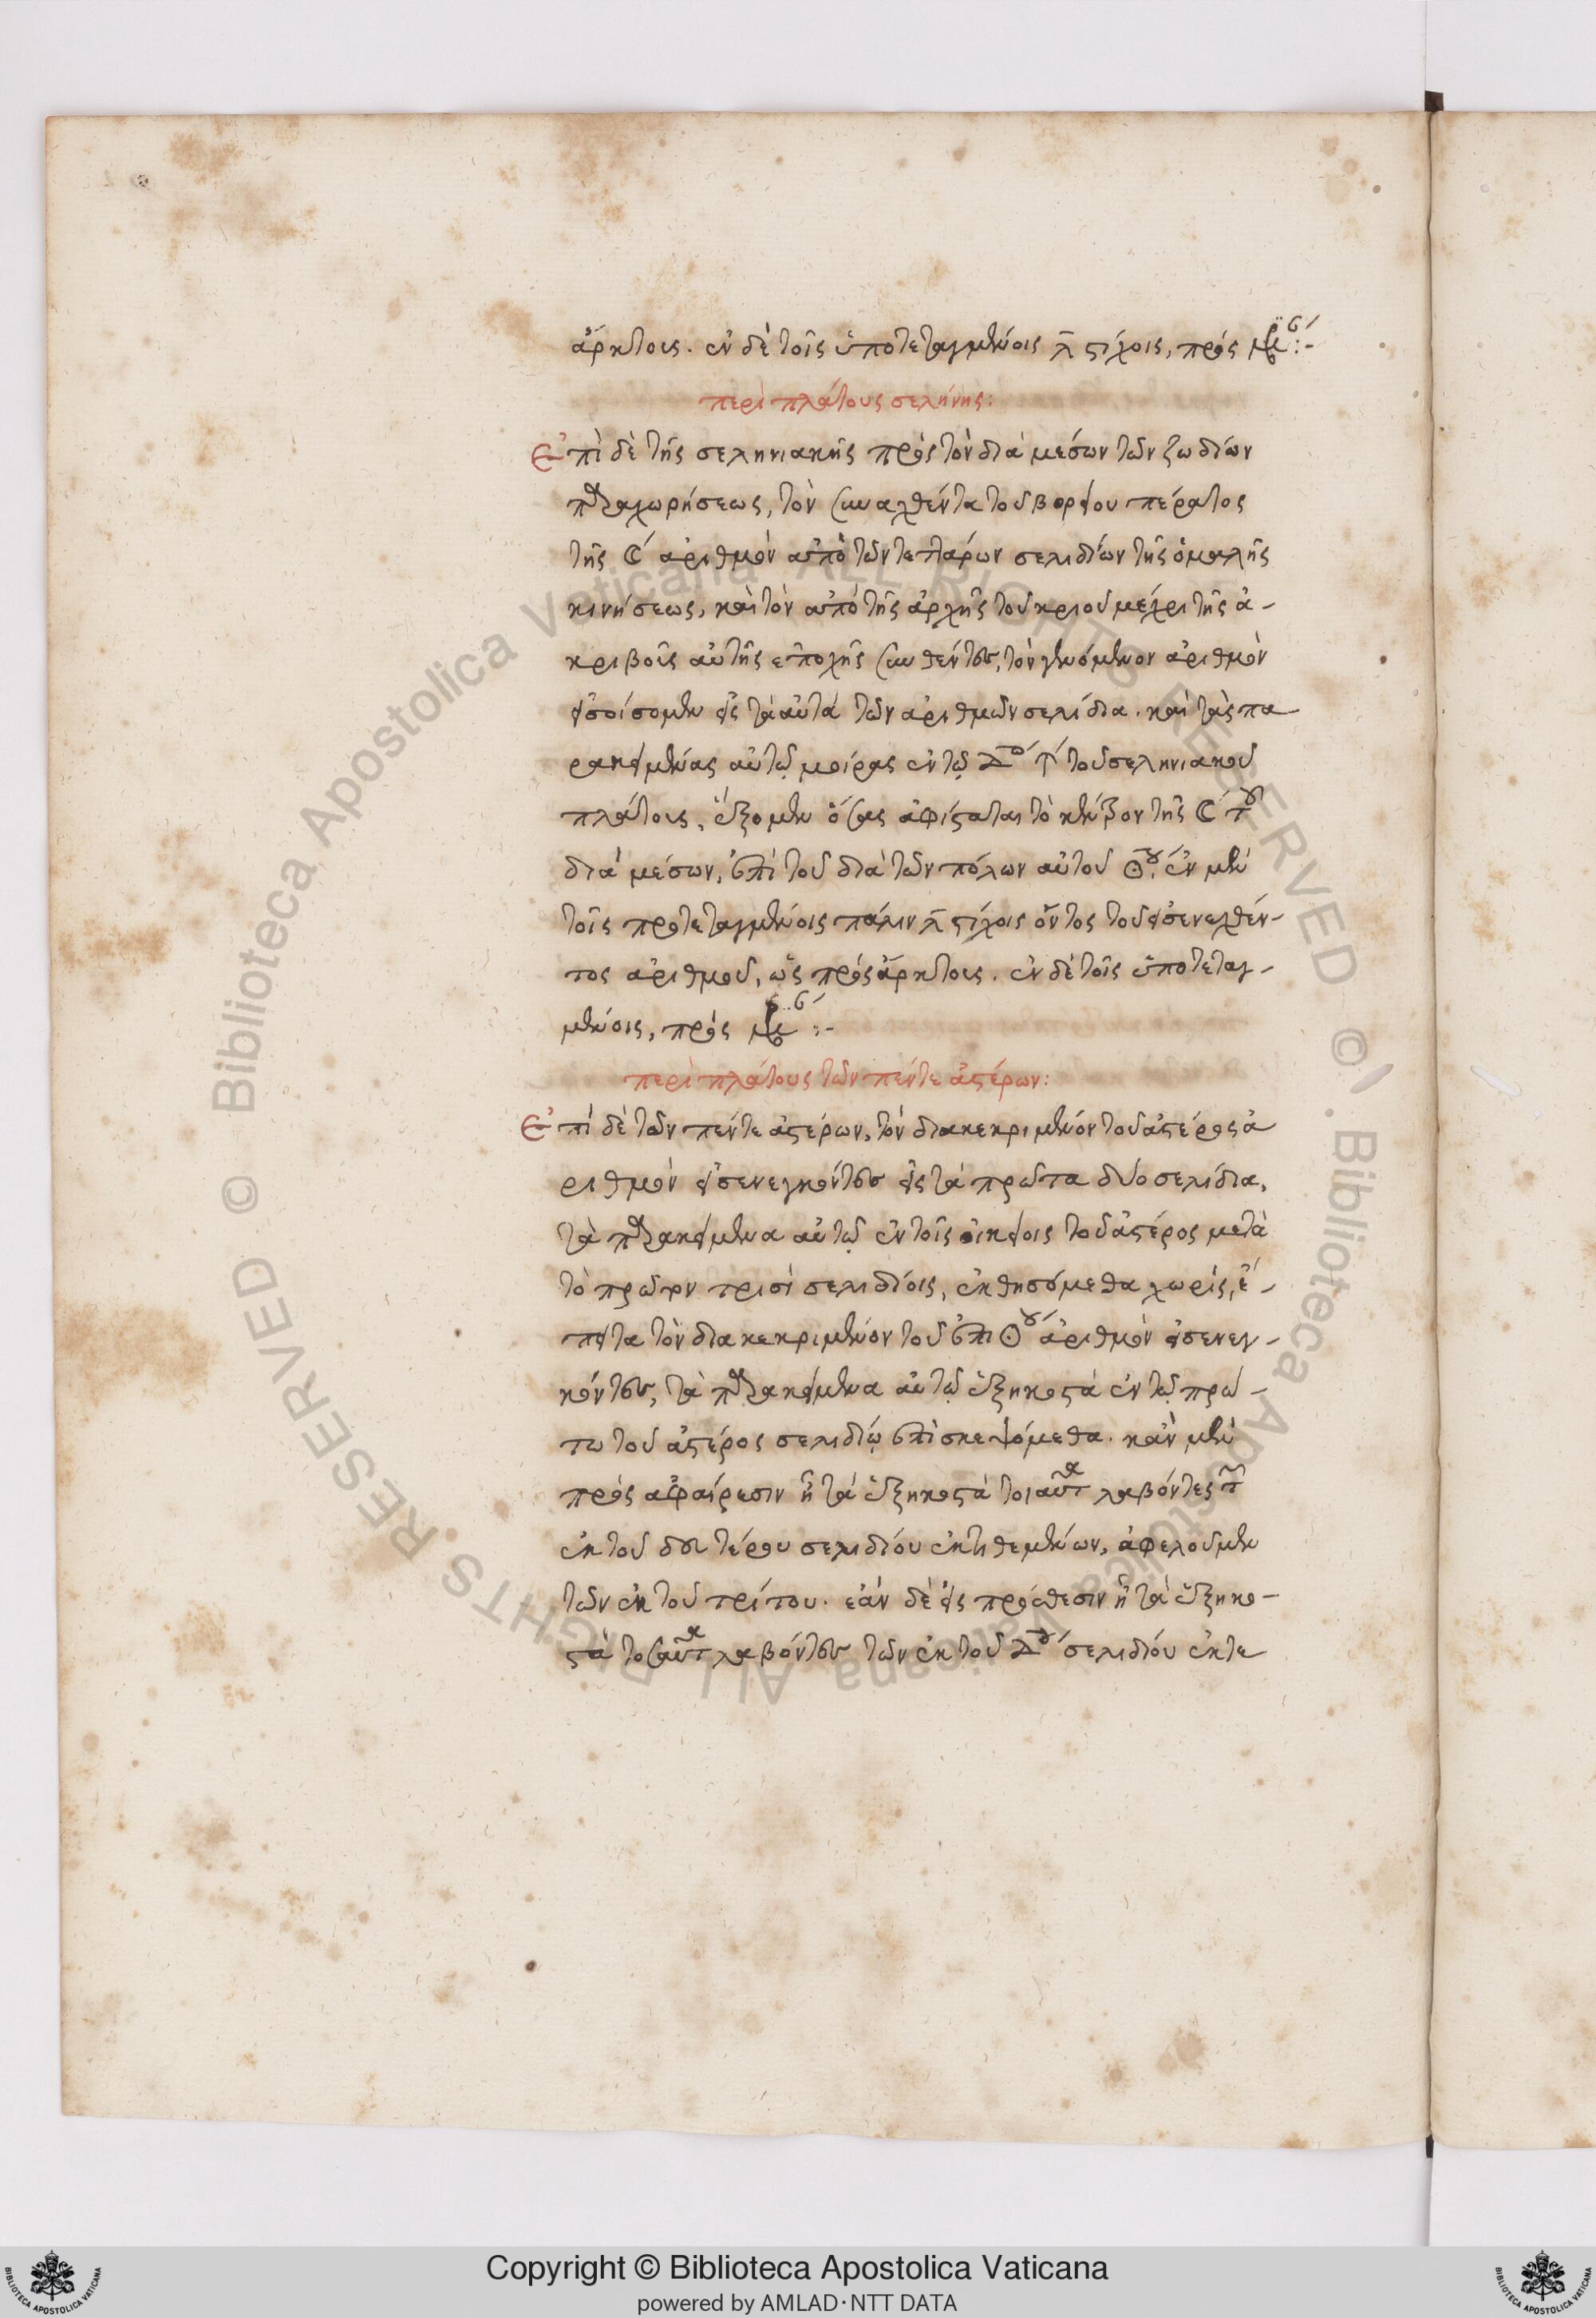 ἄρκτους. ἐν δὲ τοῖς ὑποτεταγμένοις λ̄ στίχοις, πρὸς
περὶ πλάτους σελήνης:
Ἐπὶ δὲ τῆς σεληνιακῆς πρὸς τὸν διὰ μέσων τῶν ζωδίων
παραχωρήσεως, τὸν συναχθέντα τοῦ βορείου πέρατος
τῆς ☾ ἀριθμὸν ἀπὸ τῶν τεττάρων σελιδίων τῆς ὁμαλῆς
κινήσεως, καὶ τὸν ἀπὸ τῆς ἀρχῆς τοῦ κριοῦ μέχρι τῆς ἀ-
κριβοῦς αὐτῆς ἐποχῆς συνθέντες, τὸν γενόμενον ἀριθμὸν
εἰσοίσομεν εἰς τὰ αὐτὰ τῶν ἀριθμῶν σελίδια. καὶ τὰς πα-
ρακειμένας αὐτῷ μοίρας ἐν τῷ τοῦ σεληνιακοῦ
πλάτους, ἕξομεν ὅσας ἀφίσταται τὸ κέντρον τῆς ☾ τοῦ
διὰ μέσων, ἐπὶ τοῦ διὰ τῶν πόλων αὐτοῦ ἐν μὲν
τοῖς προτεταγμένοις πάλιν λ̄ στίχοις ὄντος τοῦ εἰσενεχθέν-
τος ἀριθμοῦ, ὡς πρὸς ἄρκτους. ἐν δὲ τοῖς ὑποτεταγ-
μένοις, πρὸς
περὶ πλάτους τῶν πέντε ἀστέρων:
Ἐπὶ δὲ τῶν πέντε ἀστέρων, τὸν διακεκριμένον τοῦ ἀστέρος ἀ
ριθμὸν εἰσενεγκόντες εἰς τὰ πρῶτα δύο σελίδια,
τὰ παρακείμενα αὐτῷ ἐν τοῖς οἰκείοις τοῦ ἀστέρος μετὰ
τὸ πρῶτον τρισὶ σελιδίοις, ἐκθησόμεθα χωρίς, ἔ-
πειτα τὸν διακεκριμένον τοῦ ἐπι ἀριθμὸν εἰσενεγ-
κόντες, τὰ παρακείμενα αὐτῷ ἑξηκοστὰ ἐν τῷ πρώ-
τω τοῦ ἀστέρος σελιδίῳ ἐπισκεψόμεθα. κἂν μὲν
πρὸς ἀφαίρεσιν ᾖ τὰ ἑξηκοστὰ τοιαῦτα λαβόντες τῶν
ἐκ τοῦ δευτέρου σελιδίου ἐκτιθεμένων, ἀφελοῦμεν
τῶν ἐκ τοῦ τρίτου. ἐὰν δὲ εἰς πρόσθεσιν ᾖ τὰ ἑξηκο-
στὰ τοσαῦτα λαβόντες τῶν ἐκ τοῦ σελιδίου ἐκτε
Copyright © Biblioteca Apostolica Vaticana
powered by AMLAD·NTT DATA